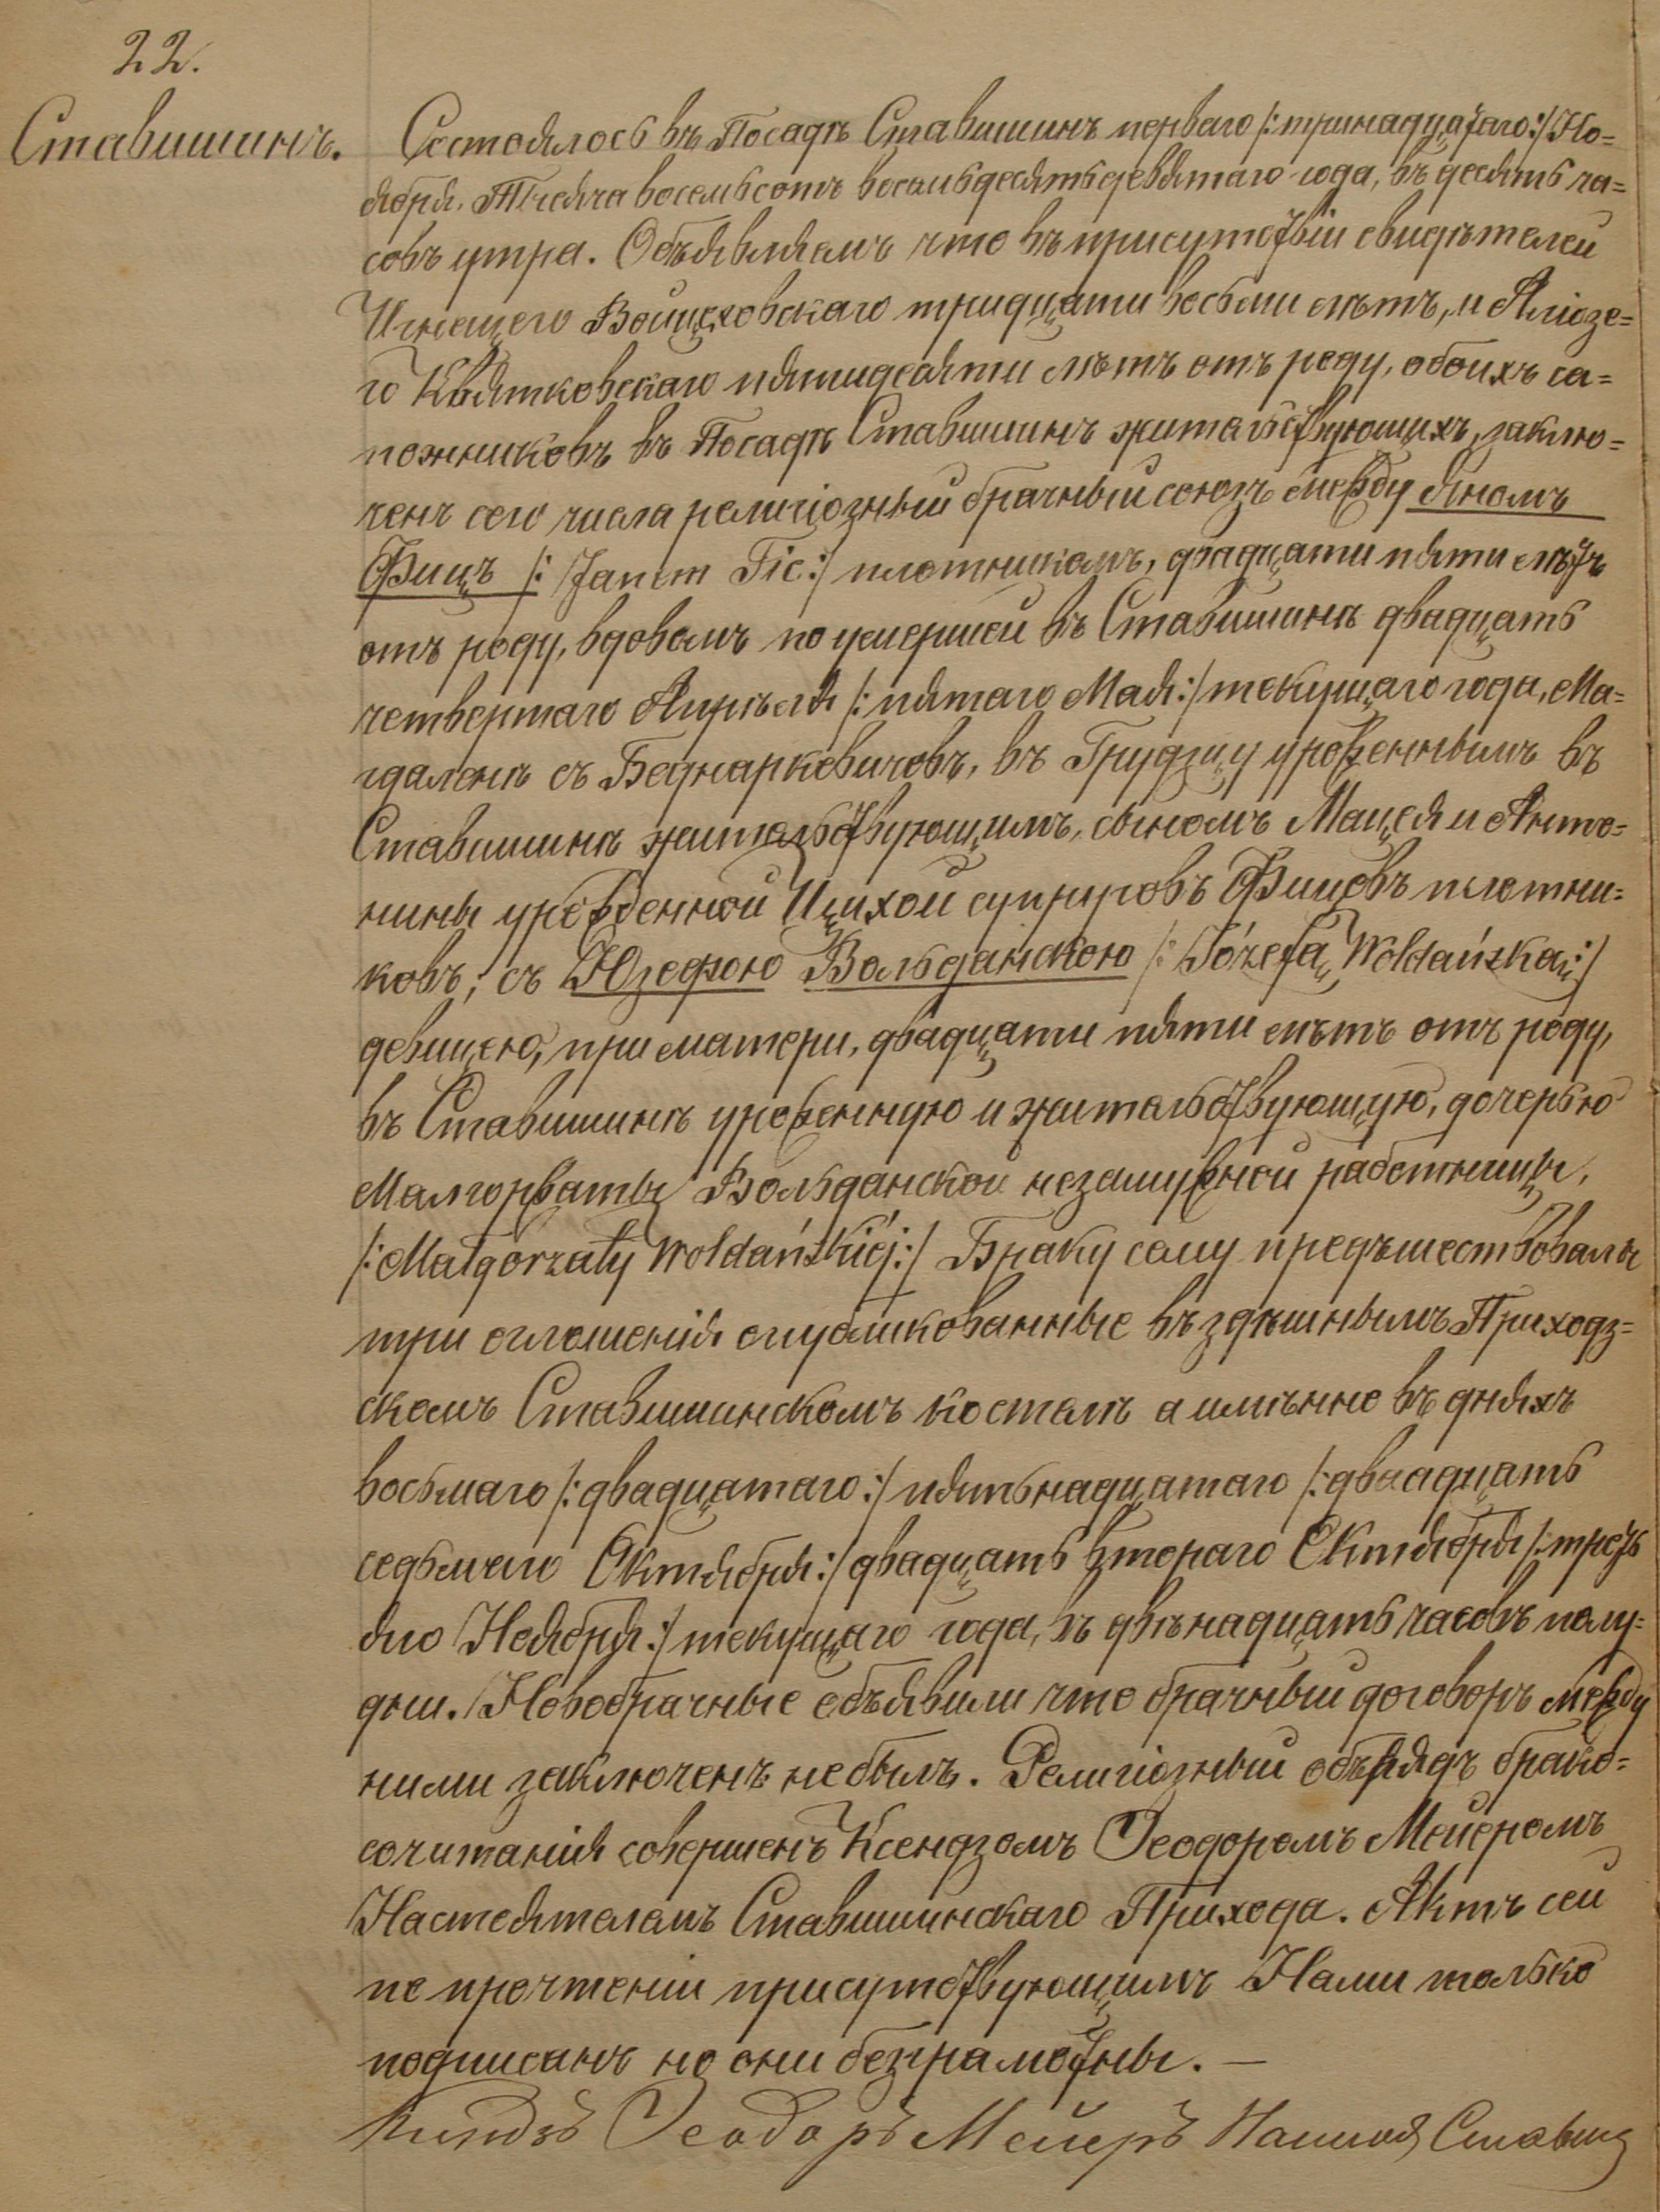 22.
Ставишинъ.
Состоялось въ Посадѣ Ставишинѣ перваго /:тринадцатаго:/ Но=
ября, Тысяча восемьсотъ восемьдесятьдевятаго года, въ десять ча=
совъ утра. Объявляемъ что въ присутствіи свидѣтелей
Игнацего Войцеховскаго тридцати восьми лѣтъ, и Алюзе=
го Квятковскаго пятидесяти лѣтъ отъ роду, обоихъ са=
пожниковъ въ Посадѣ Ставишинѣ жительствующихъ, заклю=
ченъ сего числа религіозный брачный союзъ между Яномъ
Фицъ /: Janem Fic:/ плотникомъ, двадцати пяти лѣтъ
отъ роду, вдовемъ по умершей въ Ставишинѣ двадцать
четвертаго Апрѣля /:пятаго Мая:/ текущаго года, Ма=
гдаленѣ съ Беднаркевичовъ, въ Грудзцу урожденнымъ въ
Ставишинѣ жительствующимъ, сыномъ Мацея и Анто=
нины урожденной Ицихой супруговъ Фицовъ плотни=
ковъ; съ Юзефою Вольданскою /: Józefą Wołdańską:/
девицею, при матери, двадцати пяти лѣтъ отъ роду,
въ Ставишинѣ урожденную и жительствующую, дочерью
Малгоржаты Вольданской незамужной работницы,
/:Małgorzaty Wołdańskiéj:/ Браку сему предъшествовалы
три оглошенія опубликованные въ здѣшнымъ Приходз=
скомъ Ставишинскомъ костелѣ а имѣнно въ дняхъ
восьмаго /:двадцатаго:/ пятьнадцатаго /:дваадцать
седьмого Октября:/ двадцать втораго Октября /:треть
яго Ноября:/ текущаго года, въ двѣнадцать часовъ полу=
дни. Новобрачные объявили что брачный договоръ между
ними заключенъ небылъ. Религіозный объядъ брако=
сочитанія совершенъ Ксендзомъ Ѳеодоромъ Мейеромъ
Настоятелемъ Ставишинскаго Прихода. Актъ сей
по прочтеніи присутствующимъ Нами только
подписанъ но они безграмотны. —
Ксендзъ Ѳеодоръ Мейеръ Настоя Ставиш